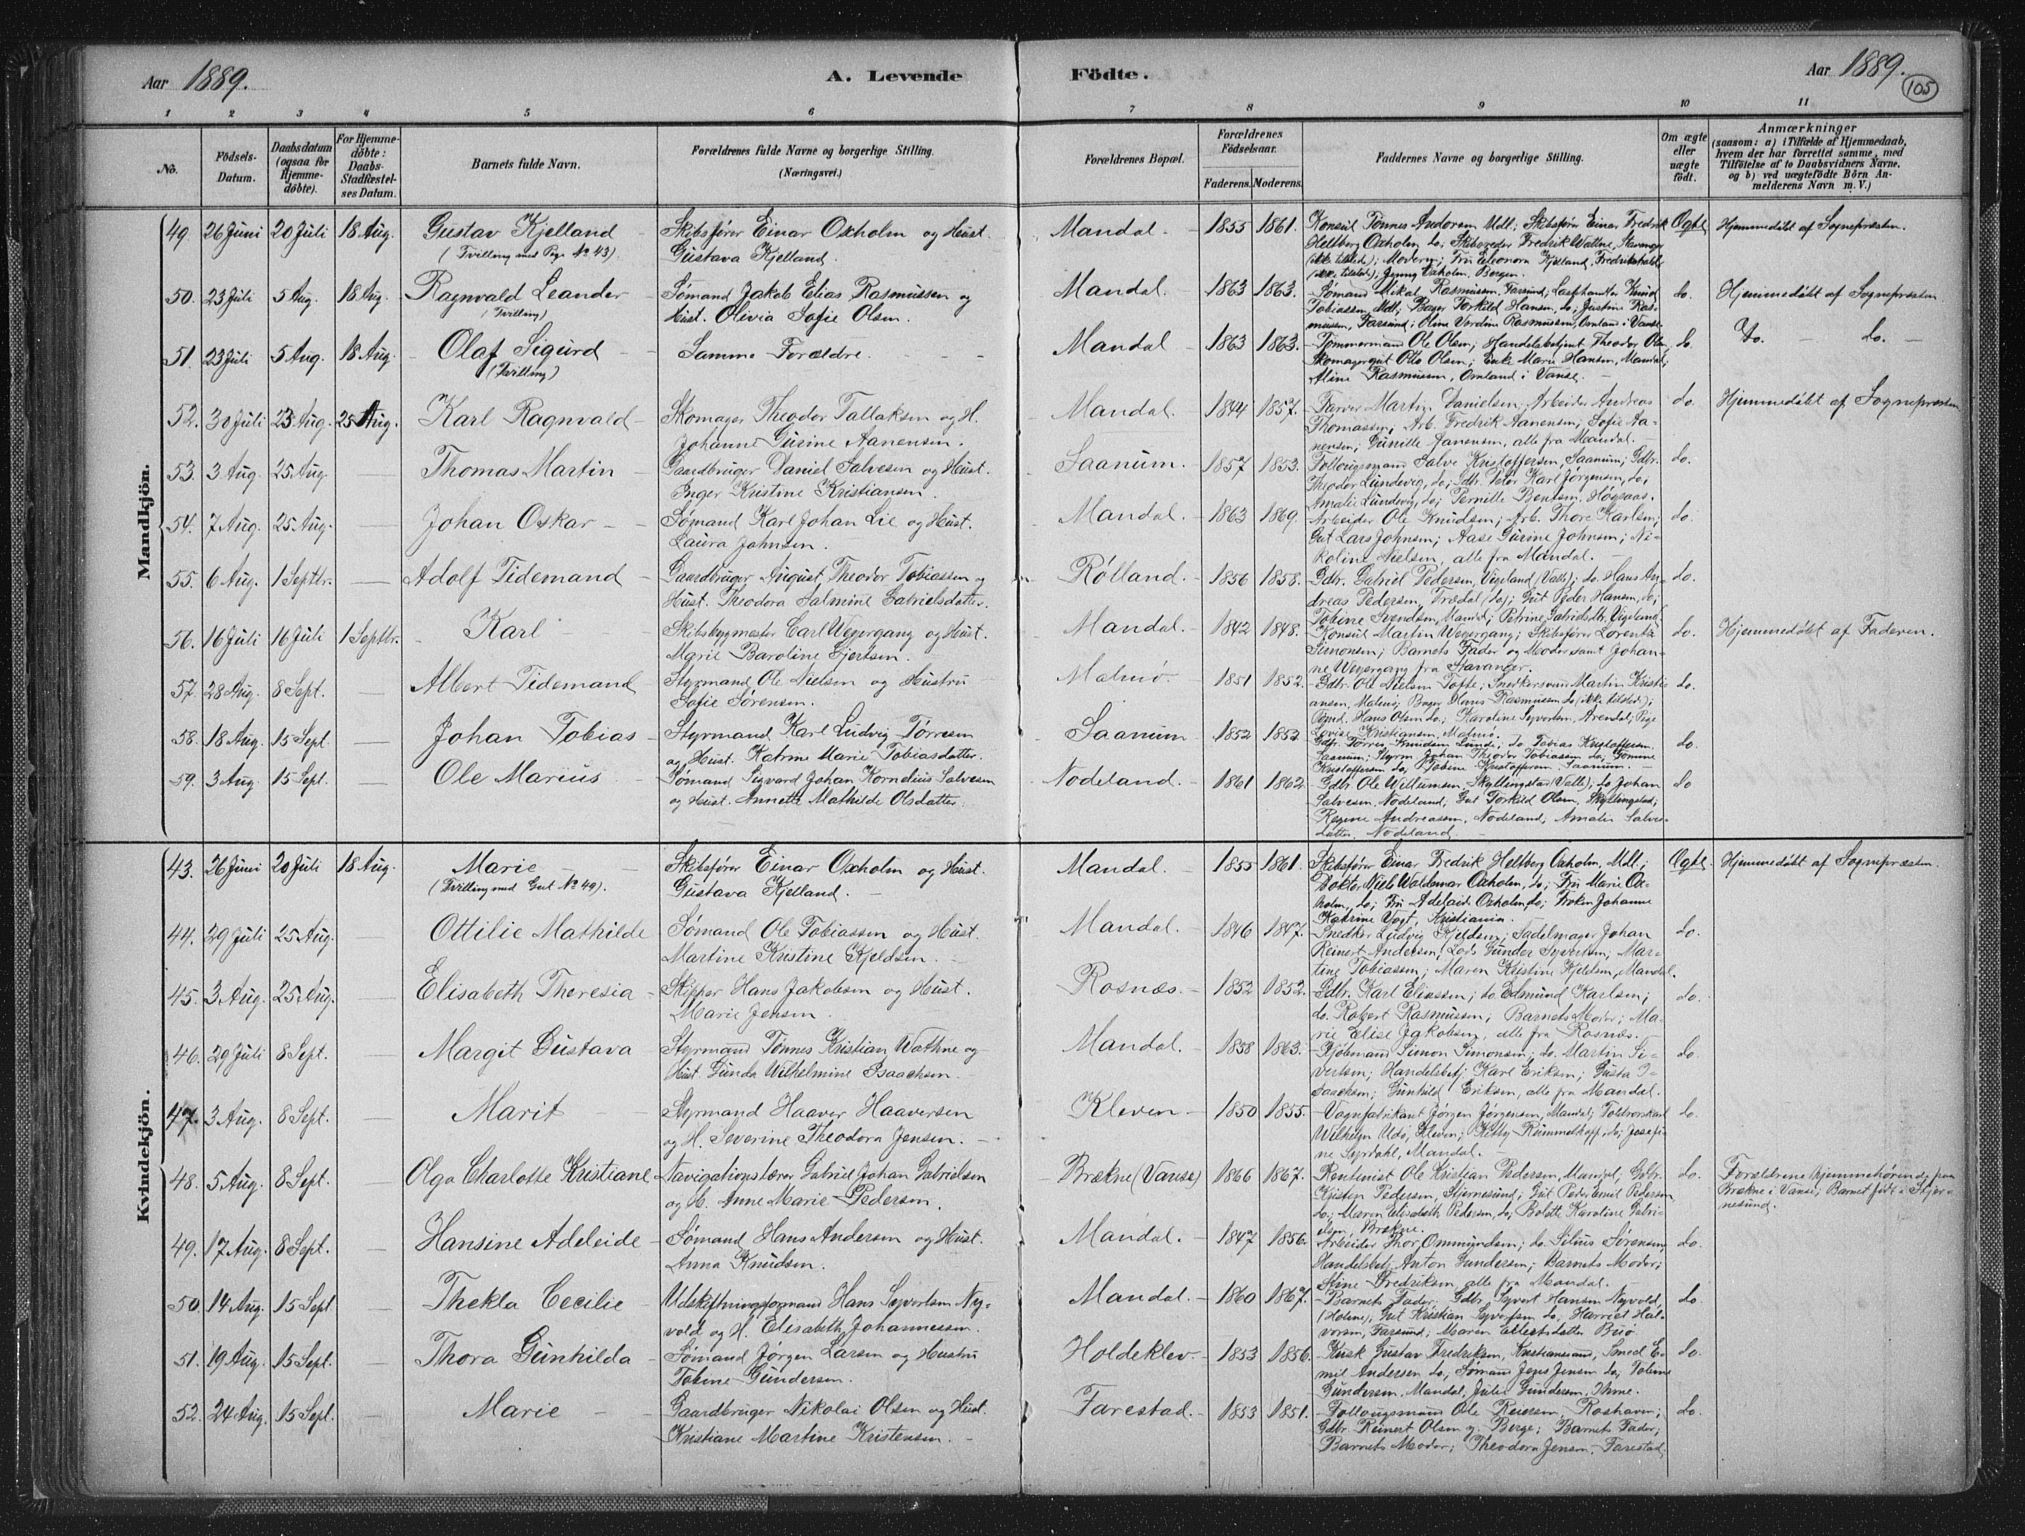 Aar 1889.
A. Levende Födte.
Aar 1889.
105
1 2 3 4 5 6 7 8 9 10 11
No.
Födsels-Datum.
Daabsdatum (ogsaa for Hjemmedöbte).
For Hjemmedöbte: Daabs-Stadfæstelses Datum.
Barnets fulde Navn.
Forældrenes fulde Navne og borgerlige Stilling. (Næringsvei.)
Forældrenes Bopæl.
Forældrenes Födselsaar.
Faderens. Moderens.
Faddernes Navne og borgerlige Stilling.
Om ægte eller uægte födt.
Anmærkninger (saasom: a) i Tilfælde af Hjemmedaab, hvem der har forrettet samme, med Tilföielse af to Daabsvidners Navne, og b) ved uægtefödte Börn Anmelderens Navn m. V.)
Mandkjön.
49. 26 Juni 20 Juli 18 Aug. Gustav Kjelland Skibsfører Einar Oxholm og Hust. Mandal 1855 1861. Konsul Tønnes Andersen Mdl; Skibsfør Einar Fredrik Ægte Hjemmedøbt af Sognepresten.
(Tvilling med Pige No 43) Gustava Kjelland. Hellberg Oxholm do, Skibsreder Fredrik Wattne, Stavanger
(ikke tilsted); Modern; Fru Eleonora Kjelland, Fredrikshald
(ikke tilsted), Jenny Oxholm, Bergen.
50. 23 Juli 5 Aug. 18 Aug. Ragnvald Leander Sømand Jakob Elias Rasmussen og Mandal 1863 1863. Sømand Mikal Rasmussen, Farsund; Knud do. Hjemmedøbt af Sognepresten
(Tvilling) Hust. Olivia Sofie Olsen. Tobiassen, Mdl; Bager Torkild Hansen, do, Justine Ras-
mussen, Farsund; Oline Rasmussen, Omland i Vanse
51. 23 Juli 5 Aug. 18 Aug. Olaf Sigurd Samme Forældre Mandal 1863 1863. Tømmermand Ole Olsen; Handelsbetjent Theodor Olsen do. Do. do.
(Tvilling) Skomagergut Otto Olsen; Enke Marie Hansen, Mandal,
Aline Rasmussen, Omland i Vanse.
52. 30 Juli 23 Aug. 25 Aug. Karl Ragnvald Skomager Theodor Tallaksen og H. Mandal. 1844 1857. Farver Martin Danielsen; Arbeider Andreas do. Hjemmedøbt af Sognepresten
Johanne Gurine Aanensen. Thomassen, Arb. Fredrik Aanensen; Sofie Aa-
nensen; Gunille Janensen, alle fra Mandal.
53. 3 Aug. 25 Aug. Thomas Martin Gaardbruger Daniel Salvesen og Hust. Saanum. 1857 1853. Salve Kristoffersen, Saanum; Gdbr. do.
Inger Kristine Kristiansen. Theodor Lundevig, do; Gdbr. Peter Karl Jørgensen, do;
Amalie Lundevig, do; Pernille Bentsen, Høgaas.
54. 7 Aug. 25 Aug. Johan Oskar Sømand Karl Johan Lie og Hust. Mandal. 1863 1869. Arbeider Ole Knudsen; Arb. Thore Karlsen; do.
Laura Johnsen. Gut Lars Johnsen; Aase Gurine Johnsen; Ni-
koline Nielsen, alle fra Mandal.
55. 6 Aug. 1 Septbr. Adolf Tidemand Gaardbruger August Theodor Tobiassen og Rølland. 1856 1858. Gdbr. Gabriel Pedersen, Vigeland (Valle); do. Hans An- do.
Hust. Theodora Salmine Gabrielsdatter. dreas Pedersen, Trædal (do); Gut Peder Hansen, do;
Tobine Svendsen, Mandal; Petrine Gabrielsdtr. Vigeland.
56. 16 Juli 16 Juli 1 Septbr. Karl Skibsbygmester Carl Wegergang og Hust. Mandal. 1842 1848. Konsul Martin Wegergang; Skibsfører Lorentz do. Hjemmedøbt af Faderen.
Marie Baroline Gjertsen. Simonsen; Barnets Fader og Moder samt Johan-
ne Wegergang fra Stavanger.
57. 28 Aug. 8 Sept. Albert Tidemand Styrmand Ole Nielsen og Hustru Malmø. 1851 1852. Gdbr. Ole Nielsen Tofte; Snedkersvend Martin Kristi- do.
Sofie Sørensen. ansen, Malmø; Bager Olaus Rasmussen do (ikke tilsted);
Hans Olsen do; Karoline Syvertsen, Arendal; Pige
Lovise Kristiansen, Malmø.
58. 18 Aug. 15 Sept. Johan Tobias Styrmand Karl Ludvig Tørresen Saanum 1852 1852. Gdbr. Tørres Knudsen Lunde, do Tobias Kristoffersen do
og Hust. Katrine Marie Tobiasdatter. Saanum; Styrm. Johan Theodor Tobiassen do; Tomine
Kristoffersen do; Tobine Kristoffersen Saanum.
59. 3 Aug 15 Sept. Ole Marius Sømand Sigvard Johan Kornelius Salvesen Nodeland. 1861 1862 Gdbr. Ole Willumsen, Skyllingstad (Valle); do Johan do
og Hust. Annette Mathilde Olsdatter. Salvesen, Nodeland, Gut Torkild Olsen, Skyllingstad;
Regine Andreassen, Nodeland, Amalie Salve-
datter, Nodeland.
Kvindekjön.
43. 26 Juni 20 Juli 18 Aug. Marie Skibsfører Einar Oxholm og Hust. Mandal 1855 1861. Skibsfører Einar Fredrik Hellberg Oxholm, Mdl; Ægte. Hjemmedøbt af Sognepresten.
(Tvilling med Gut No 49). Gustava Kjelland. Doktor Niels Waldemar Oxholm, do; Fru Marie Ox-
holm, do; Fru Adelaide Oxholm do; Frøken Johanne
Katrine Vogt, Kristiania.
44. 29 Juli 25 Aug. Ottilie Mathilde Sømand Ole Tobiassen og Hust. Mandal. 1846 1847. Snedker Ludvig Kjeldsen; Sadelmager Johan do.
Martine Kristine Kjeldsen. Reinert Andersen, Lods Gunder Syvertsen; Mar-
tine Tobiassen; Maren Kristine Kjeldsen, Mandal.
45. 3 Aug. 25 Aug. Elisabeth Theresia Skipper Hans Jakobsen og Hust. Rosnæs. 1852 1852. Gdbr. Karl Eliassen; do. Edmund Karlsen; do.
Marie Jensen. do. Robert Rasmussen; Barnets Moder; Ma-
rie Elise Jakobsen, alle fra Rosnæs.
46. 29 Juli 8 Sept. Margit Gustava Styrmand Tønnes Kristian Wathne og Mandal. 1858 1863. Kjøbmand Simon Simonsen; do. Martin Si- do.
Hust. Gunda Wilhelmine Isaachsen. vertsen; Handelsbetj. Karl Eriksen; Gusta I-
saachsen; Gunhild Eriksen, alle fra Mandal.
47. 3 Aug. 8 Sept. Marit Styrmand Haaver Haaversen Kleven 1850 1855. Vognfabrikant Jørgen Jørgensen, Mandal; do.
og H. Severine Theodora Jensen. Wilhelm Udø, Kleven; Kitty Rummelhoff, do; Josefi-
ne Syrdahl, Mandal.
48. 5 Aug. 8 Sept. Olga Charlotte Kristiane Navigationslærer Gabriel Johan Gabrielsen Brækne (Vanse) 1866 1867. Rentenist Ole Kristian Pedersen, Mandal; Gdbr. do. Forældrene hjemmehørende paa
og H. Anne Marie Pedersen. Kristen Pedersen, Stjernesund; Gut Peder Emil Pedersen, Brækne i Vanse, Barnet født i Stjer-
do; Maren Elisabeth Pedersen, do; Bolette Karoline Gabri- nesund.
elsen Brækne.
49. 17 Aug. 8 Sept. Hansine Adeleide Sømand Hans Andersen og Hust. Mandal. 1847 1856. Arbeider Thor Ommundsen; do. Silius Sørensen, do.
Anna Knudsen. Handelsbetj. Anton Gundersen; Barnets Moder;
Stine Fredriksen, alle fra Mandal.
50. 14 Aug. 15 Sept. Thekla Cecilie Udskiftningsformand Hans Syvertsen Ny- Mandal. 1860 1867. Barnets Fader, Gdbr. Syvert Hansen Nyvold do.
vold og H. Elisabeth Johannessen. (Holme), Gut Kristian Syvertsen do, Harriet Hal-
vorsen, Farsund; Maren Ellertsdatter Buø.
51. 19 Aug. 15 Sept. Thora Gunhilda Sømand Jørgen Larsen og Hustru Holdeklev 1853 1856. Kusk Gustav Fredriksen, Kristianssand, Smed E- do.
Tobine Gundersen. mil Andersen do, Sømand Jens Jensen do, Tobine
Gundersen, Mandal, Julie Gundersen, Ihme.
52. 24 Aug. 15 Sept. Marie Gaardbruger Nikolai Olsen og Hust. Farestad. 1853 1851. Ole Reiersen, Roshavn; do.
Kristiane Martine Kristensen. Gdbr. Reinert Olsen og Berge; Barnets Fader;
Barnets Moder; Theodora Jensen, Farestad.